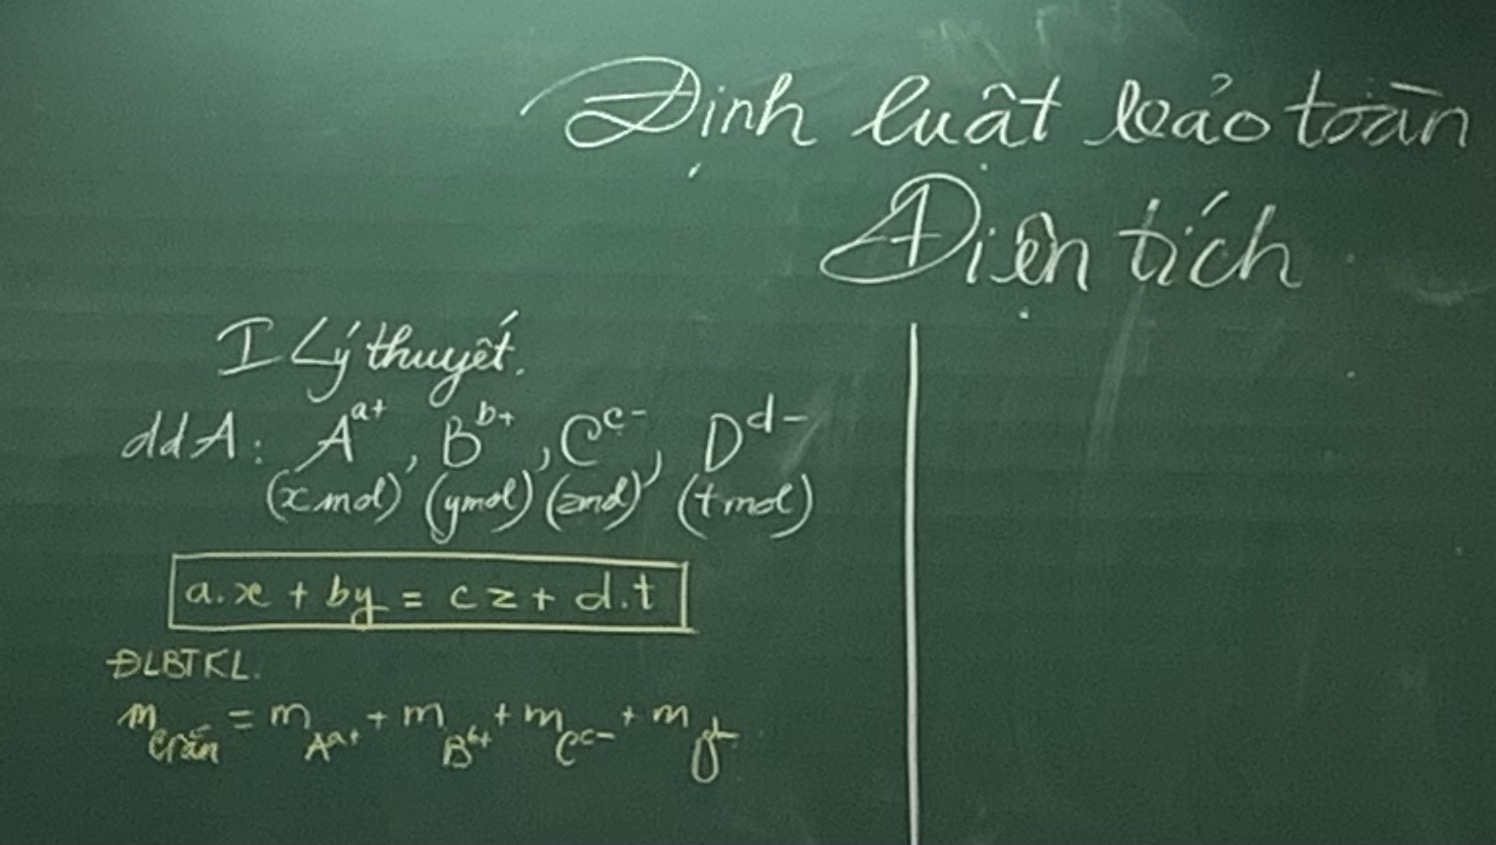 Định luật bảo toàn
Điện tích
I Lý thuyết.
ddA: A^{a+}, B^{b+}, C^{c-}, D^{d-}
(x mol), (y mol) (z mol), (t mol)
a.x + by = cz + d.t
ĐLBTKL.
m_{crắn} = m_{A^{a+}} + m_{B^{b+}} + m_{C^{c-}} + m